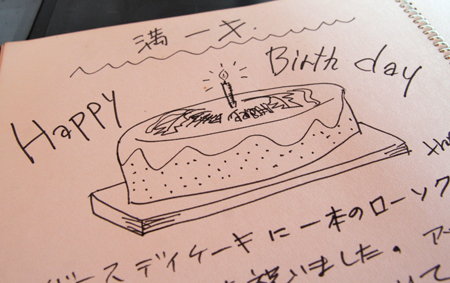 満一才.
Happy Birth day
バースデイケーキに一本のローソク
祝いました。